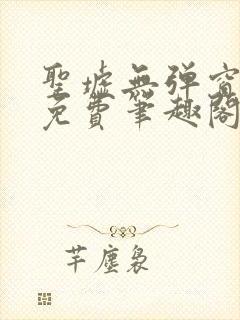 聖墟無弹窗
免費筆趣閣
芊塵裊